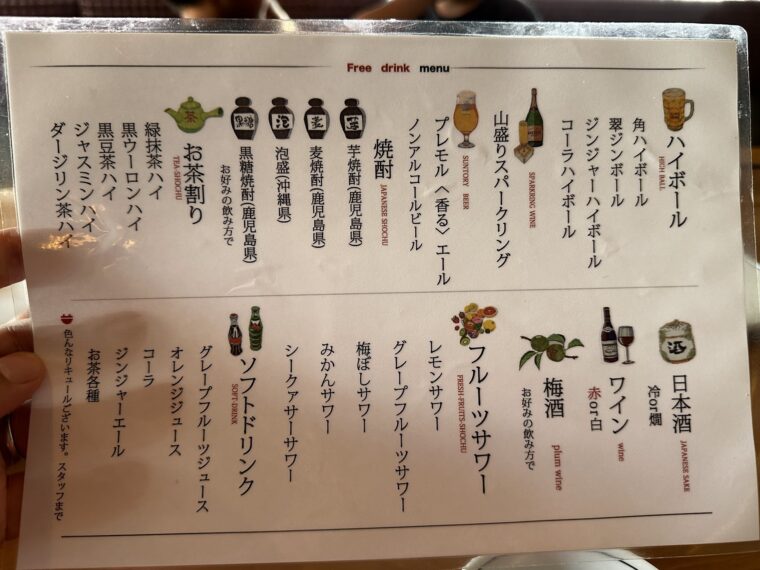 Free drink menu
ハイボール
HIGH BALL
角ハイボール
翠ジンボール
ジンジャーハイボール
コーラハイボール
山盛りスパークリング
SPARKRING WINE
SUNTORY BEER
プレモル〈香る〉エール
ノンアルコールビール
焼酎
JAPANESE SHOCHU
芋
芋焼酎(鹿児島県)
麦
麦焼酎(鹿児島県)
泡
泡盛(沖縄県)
黒糖
黒糖焼酎(鹿児島県)
お好みの飲み方で
茶
お茶割り
TEA-SHOCHU
緑抹茶ハイ
黒ウーロンハイ
黒豆茶ハイ
ジャスミンハイ
ダージリン茶ハイ
酒
日本酒
JAPANESE SAKE
冷or燗
ワイン
wine
赤or白
梅酒
plum wine
お好みの飲み方で
フルーツサワー
FRESH-FRUITS-SHOCHU
レモンサワー
グレープフルーツサワー
梅ぼしサワー
みかんサワー
シークァサーサワー
ソフトドリンク
SOFT-DRINK
グレープフルーツジュース
オレンジジュース
コーラ
ジンジャーエール
お茶各種
色んなリキュールございます。スタッフまで